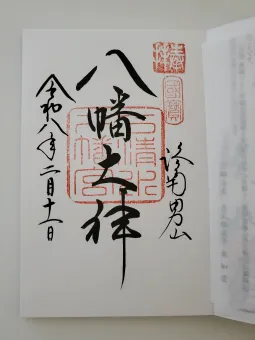 奉拝
國寶
男山
八幡大神
石清水
八幡宮
令和八年二月十一日